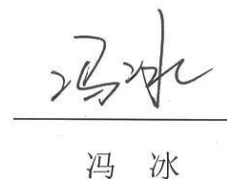 冯冰
冯 冰